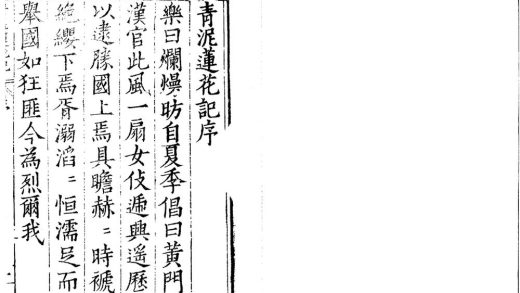 青泥蓮花記序
樂曰爛熳昉自夏季倡曰黃門
漢官此風一扇女伎遞興遥歷
以逮勝國上焉具瞻赫〻時褫
絶纓下焉胥溺滔〻恒濡足而
舉國如狂匪今為烈爾我